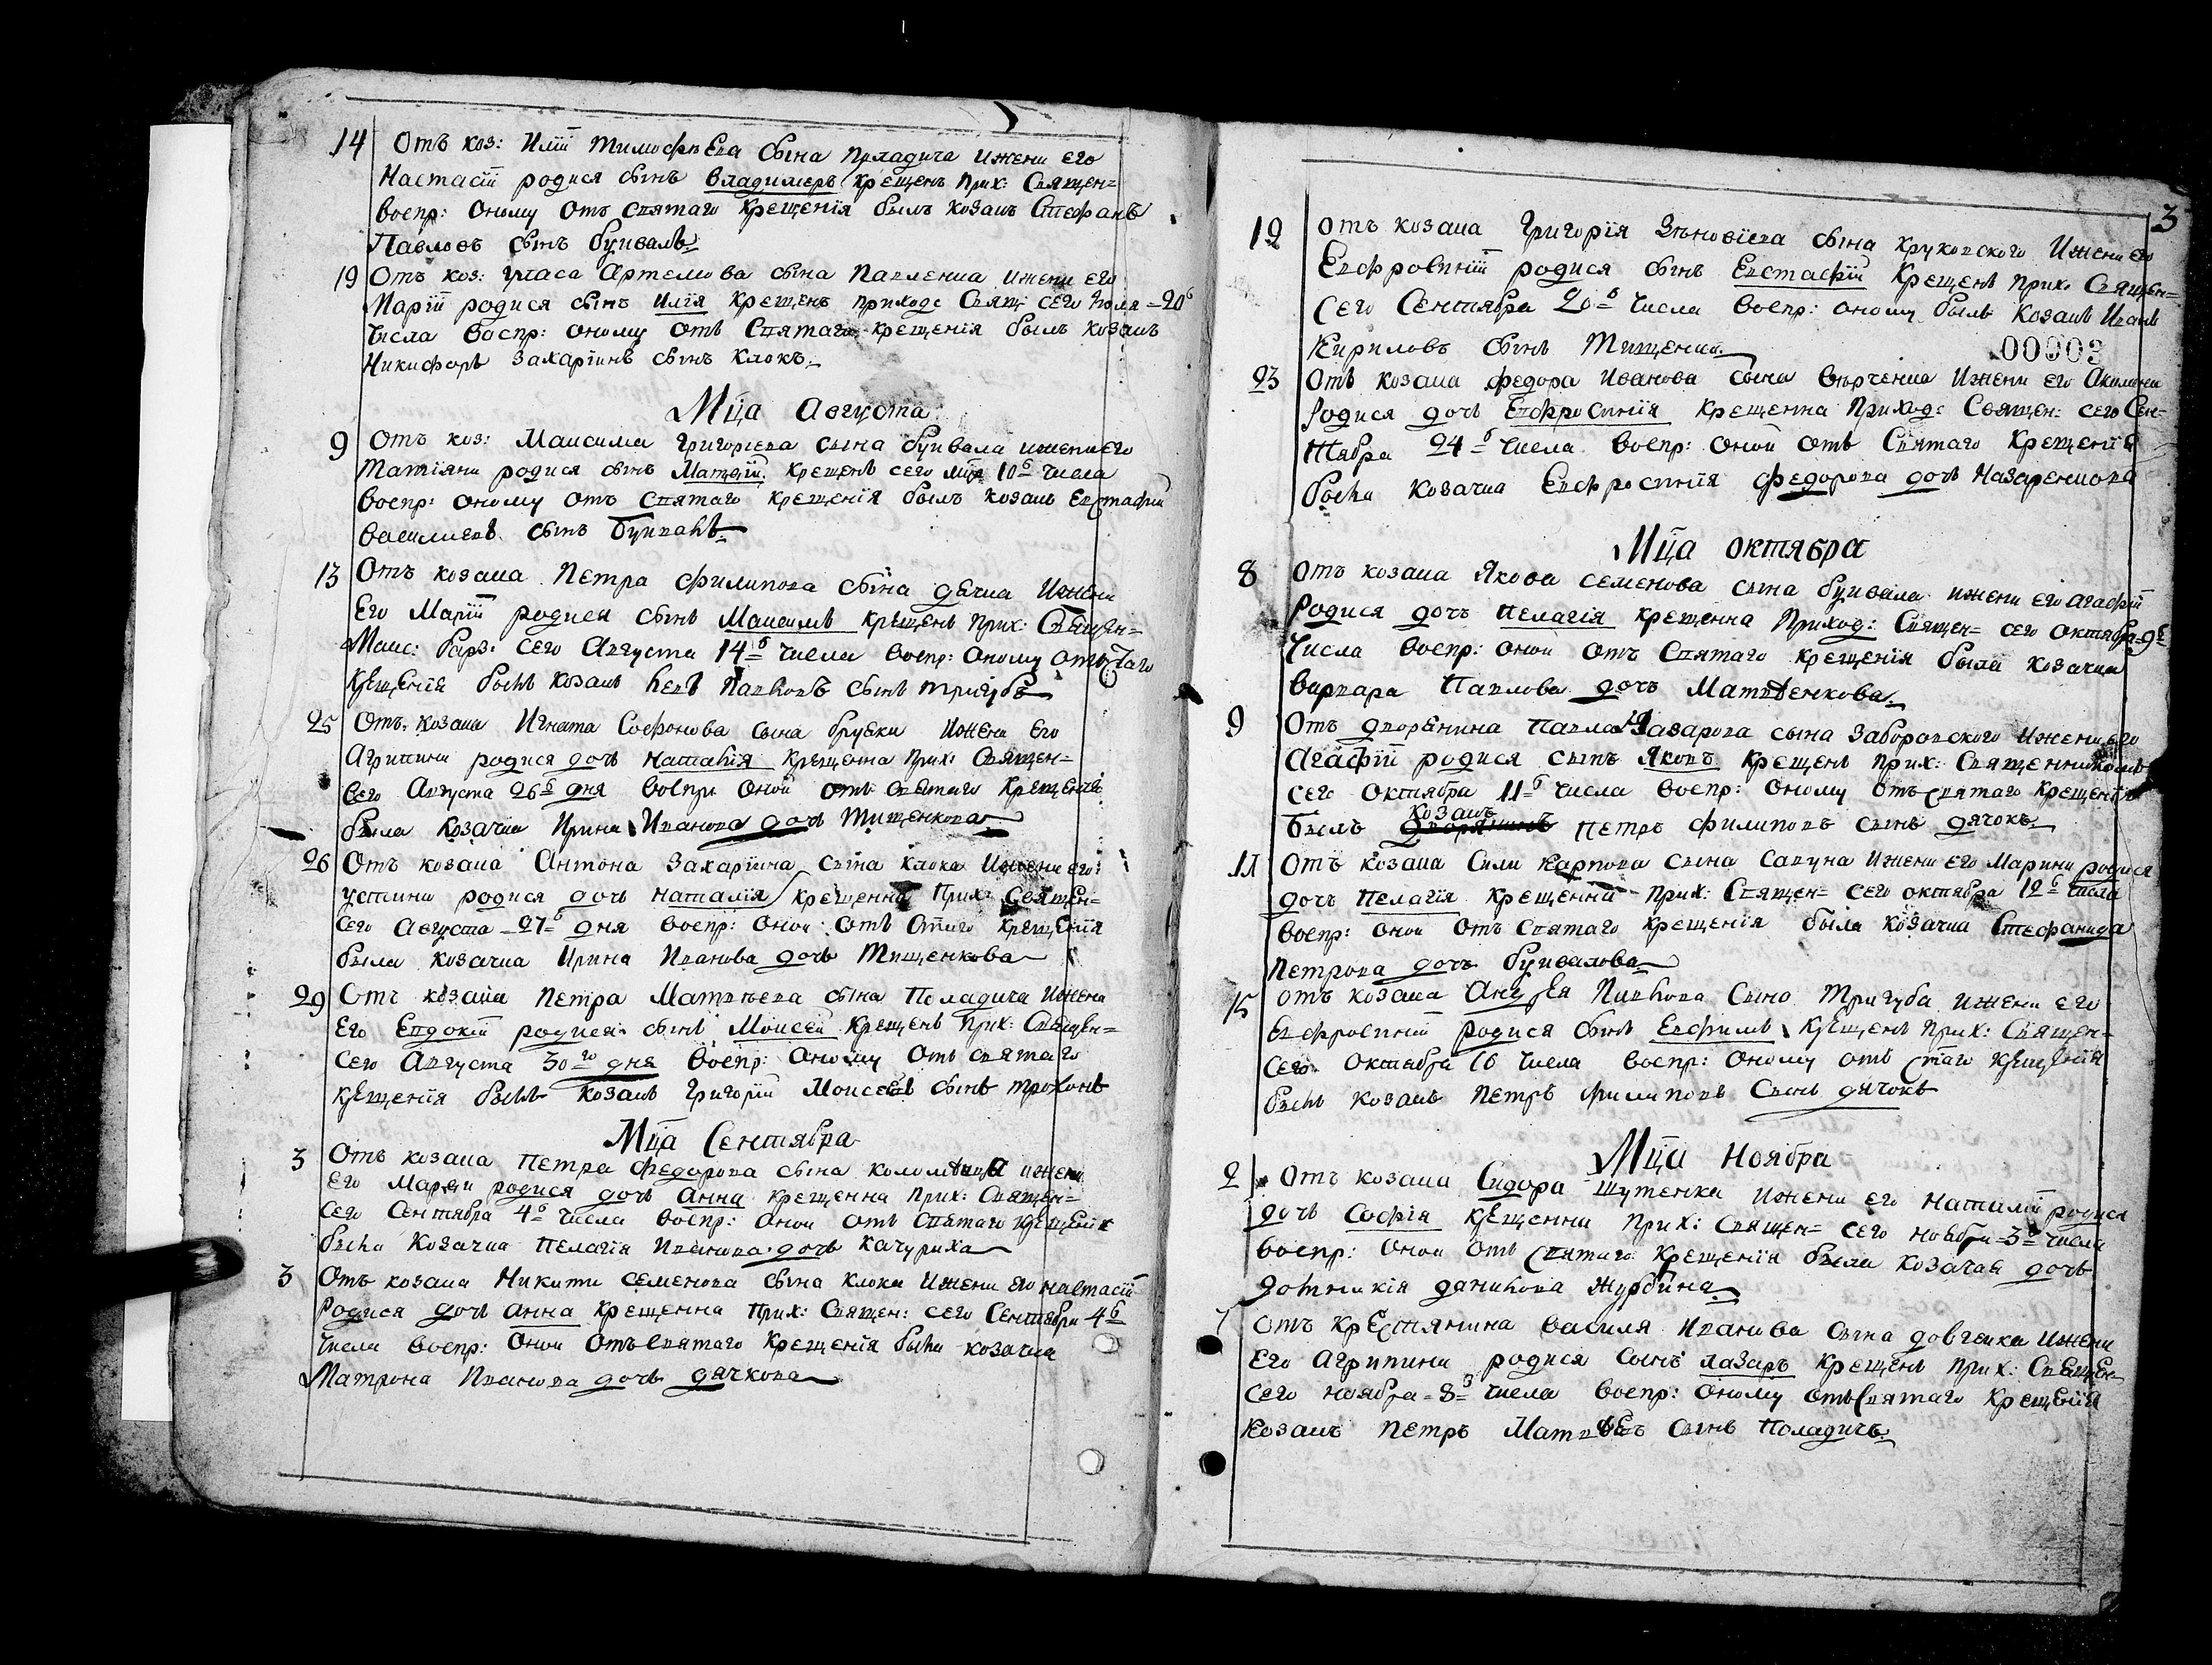 14 Отъ коз: Иліи Тимофѣева сына Поладича и жени его
Настасіи родися сынъ Владимеръ крещенъ прих: Священ=
воспр: оному отъ святаго крещенія былъ козакъ Стефанъ
Павловъ сынъ Буйвалъ.
19 Отъ коз: Уласа Артемова сына Павленка и жени его
Маріи родися сынъ Илія крещенъ приход: Свящ: сего Іюля =20ᵒ
числа воспр: оному отъ Святаго крещенія былъ козакъ
Никифоръ Захаріинъ сынъ Клокъ.
Мца Августа
9 Отъ коз: Максима Григориева сына Буйвала и жени его
Татіяни родися сынъ крещенъ сего мца 10ᵒ числа
воспр: оному отъ Святаго крещенія былъ козакъ Евстафій
Василиевъ сынъ
13 Отъ козака Петра Филипова сына Дячка и жени
его Маріи родися сынъ Максимъ крещенъ прих: Священ=
Макс: сего Августа 14ᵒ числа воспр: оному отъ Стаго
крещенія былъ козакъ Левъ Павловъ сынъ Тригубъ
25 Отъ козака Игната Софонова сына и жени его
Агрипини родися дочь Наталія крещенна прих: Священ=
сего Августа 26ᵒ дня воспр: оной отъ святаго крещенія
была козачка Ирина Иванова дочь Тищенкова
26 Отъ козака Антона Захаріина сына Клока и жени его
Устини родися дочь Наталія крещенна прих: Священ=
сего Августа =27ᵒ дня воспр: оной отъ Стаго крещенія
была козачка Ирина Иванова дочь Тищенкова
29 Отъ козака Петра Матвѣева сына Поладича и жени
его Евдокіи родися сынъ Моисей крещенъ прих: Священ=
сего Августа 30ᵍᵒ дня воспр: оному отъ святаго
крещенія былъ козакъ Григорій Моисеевъ сынъ
Мца Сентября
3 Отъ козака Петра Федорова сына и жени
его родися дочь Анна крещенна прих: Священ=
сего Сентября 4ᵒ числа воспр: оной отъ Святаго крещенія
была козачка Пелагія Иванова дочь Качуриха
3 Отъ козака Никити Семенова сына Клока и жени его Настасіи
родися дочь Анна крещенна прих: Священ: сего Сентября 4ᵒ
числа воспр: оной отъ Святаго крещенія была козачка
Матрона Иванова дочь Дячкова
3
12 Отъ козака Григорія Зѣновіева сына Круковского и жени его
Евфросиніи родися сынъ Евстафій крещенъ прих: Священ=
сего Сентября 20ᵒ числа воспр: оному былъ козакъ Иванъ
Кириловъ сынъ Тищенко.
00003
23 Отъ козака Федора Иванова сына и жени его Акилини
родися дочь Евфросинія крещенна приход: Священ: сего Сен=
тября 24ᵒ числа воспр: оной отъ Святаго крещенія
была козачка Евфросинія Федорова дочь Назаренкова
Мца Октября
8 Отъ козака Якова Семенова сына Буйвала и жени его Агафіи
родися дочь Пелагія крещенна приход: Священ= сего октября =9ᵒ
числа воспр: оной отъ Святаго крещенія была козачка
Варвара Павлова дочь Матвѣенкова.
9 Отъ дворенина Павла Лазарова сына Заборовского и жени его
Агафіи родися сынъ Яковъ крещенъ прих: Священникомъ
сего октября 11ᵒ числа воспр: оному отъ святаго крещенія
козакъ
былъ дворянинъ Петръ Филиповъ сынъ Дячокъ.
11 Отъ козака Сили Карпова сына Сапуна и жени его Марини родися
дочь Пелагія крещенна прих: Священ= сего октября 12ᵒ числа
воспр: оной отъ Святаго крещенія была козачка Стефанида
Петрова дочь Буйвалова
15 Отъ козака Андрея Павлова сына Тригуба и жени его
Евфросиніи родися сынъ Евфимъ крещенъ прих: Священ=
сего октября 16 числа воспр: оному отъ Стаго крещенія
былъ козакъ Петръ Филиповъ сынъ Дячокъ
Мца Ноября
2 Отъ козака Сидора Шутенка и жени его Наталіи родися
дочь Софія крещенна прих: Священ= сего ноября =3ᵒ числа
воспр: оной отъ Святаго крещенія была козачая дочь
Данилова Журбина
7 Отъ крестянина Василя Иванова сына Довгенка и жени
его Агрипини родися сынъ Лазаръ крещенъ прих: Священ=
сего ноября =8ᵒ числа воспр: оному отъ Святаго крещенія
козакъ Петръ Матвѣевъ сынъ Поладичъ.